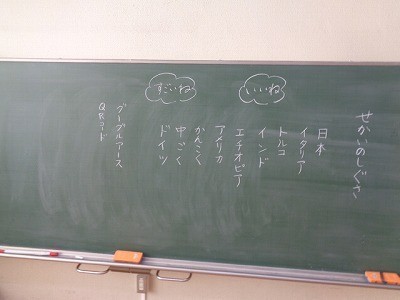 せかいのしぐさ
いいね
日本
イタリア
トルコ
インド
エチオピア
すごいね
アメリカ
かんこく
中ごく
ドイツ
グーグルアース
QRコード